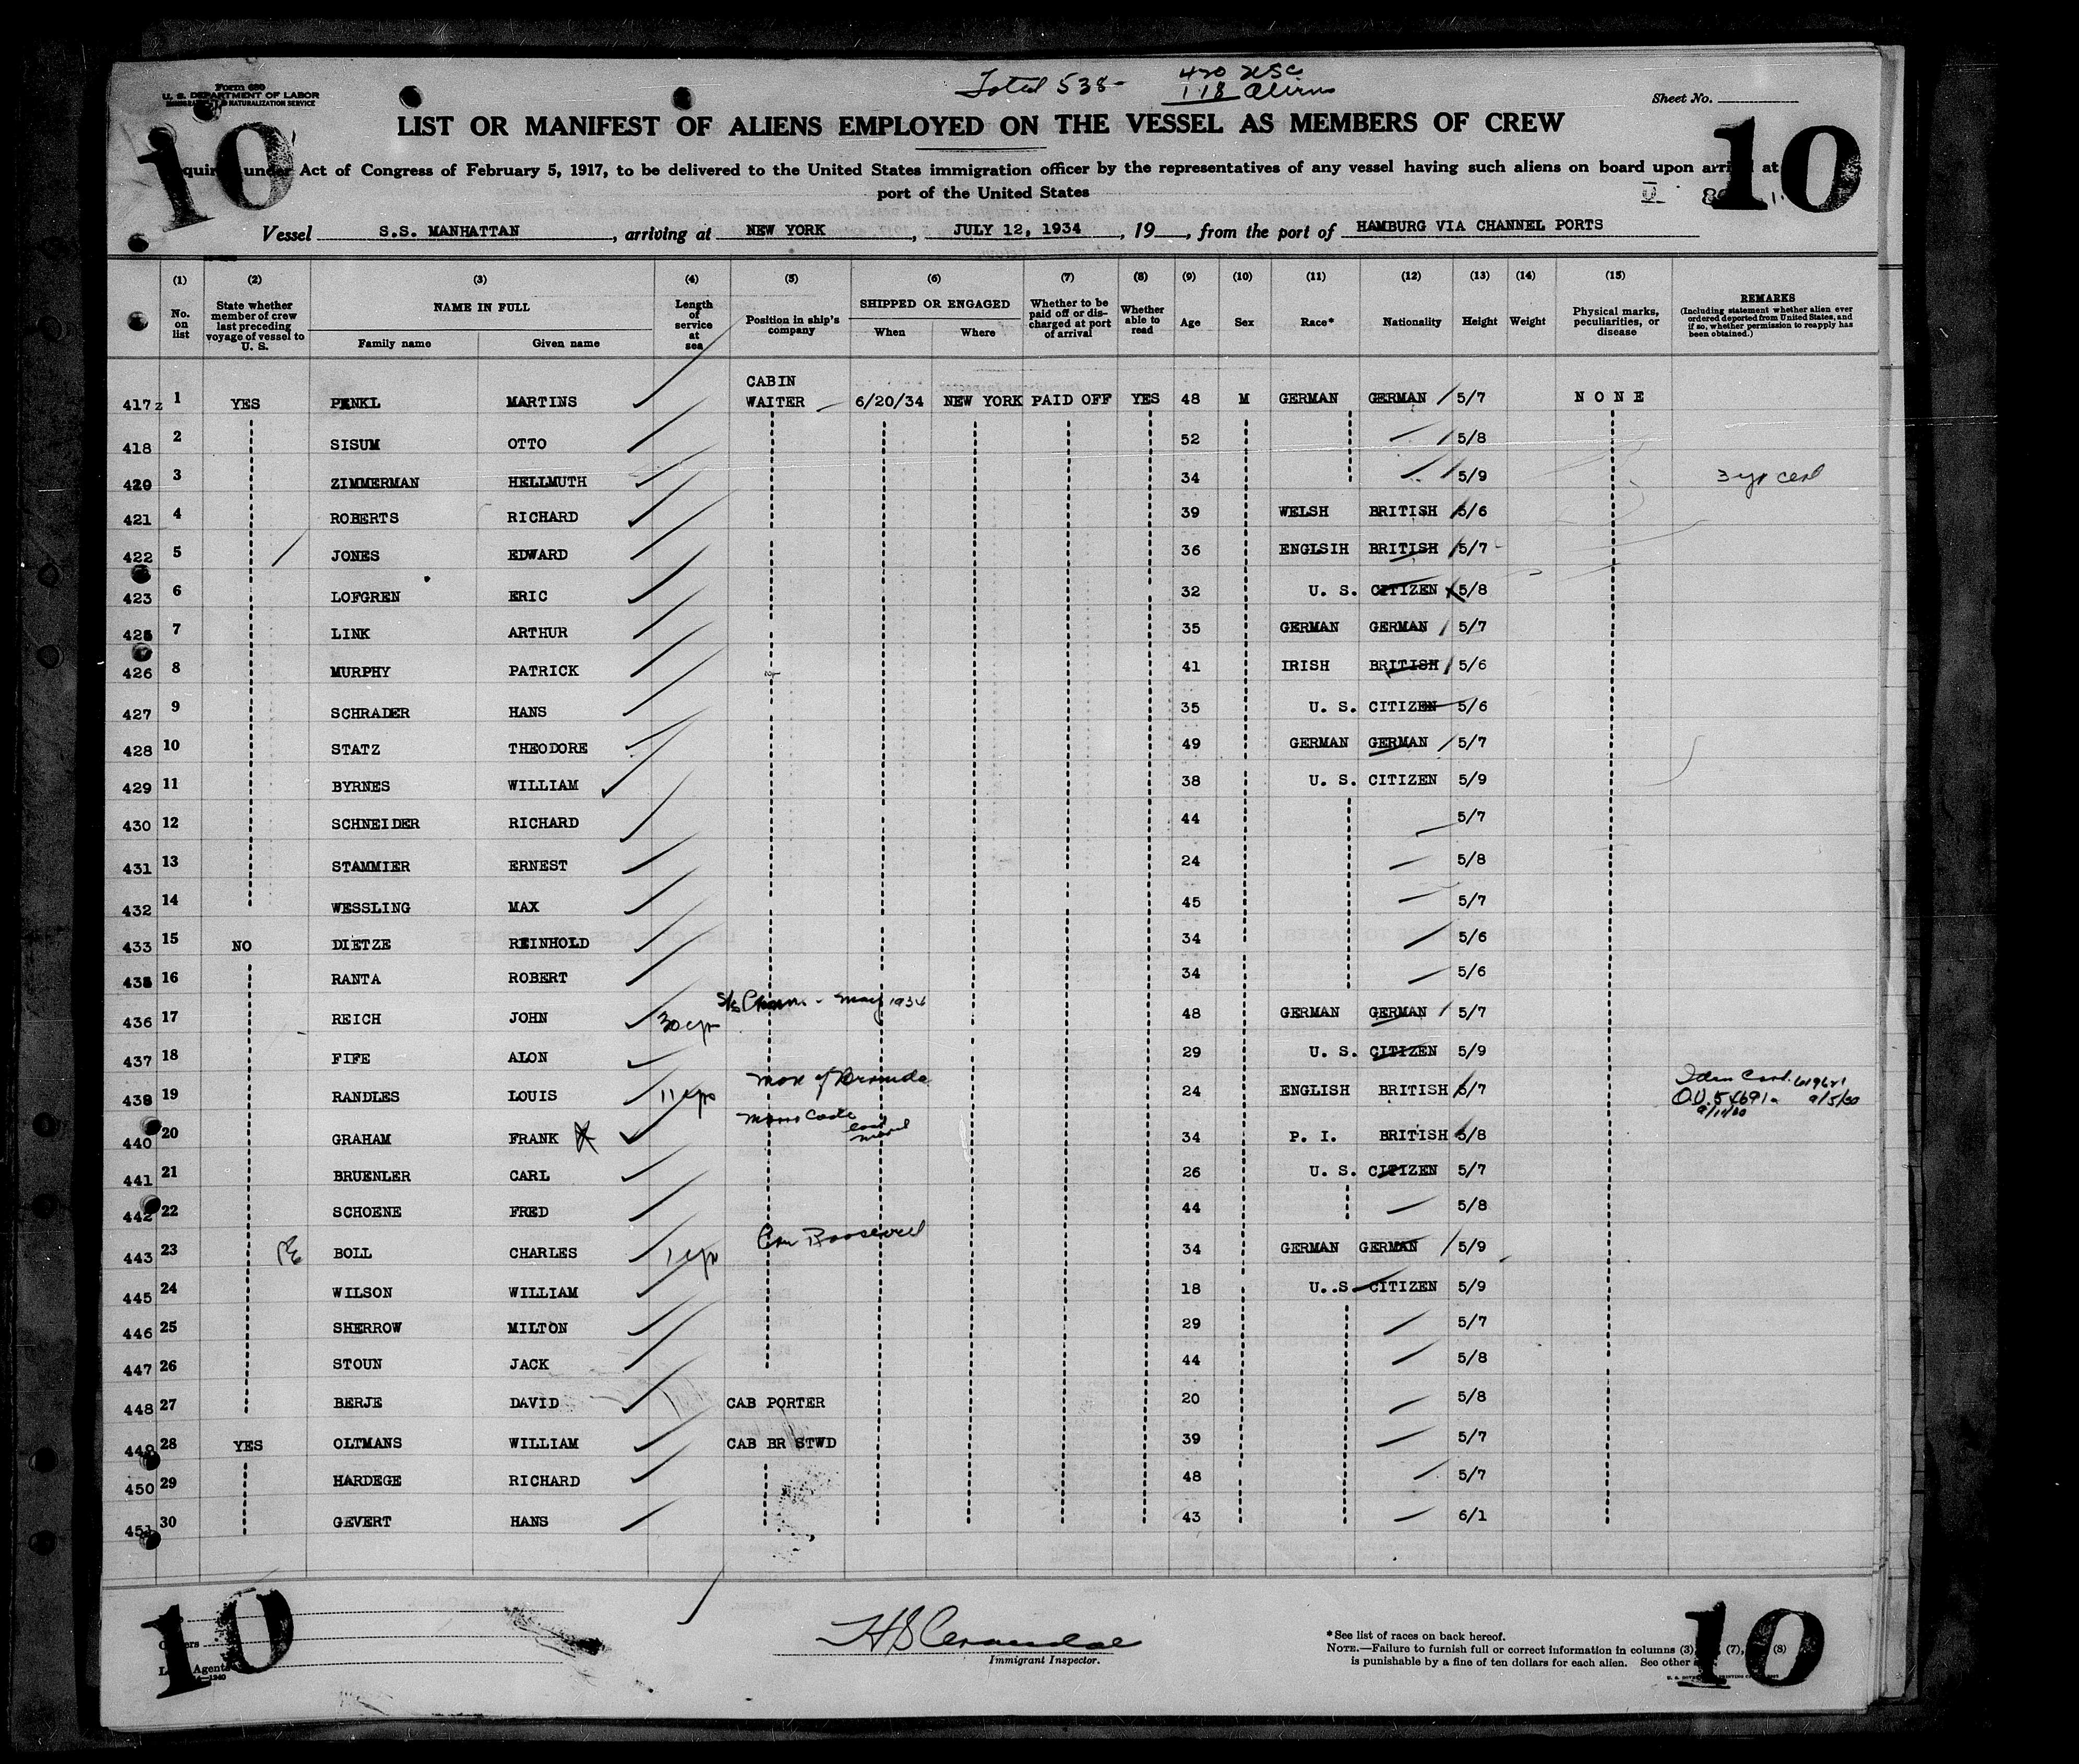 Total 538- 420 USC
118 Aliens
Form 680
U. S. DEPARTMENT OF LABOR
IMMIGRATION & NATURALIZATION SERVICE
Sheet No.
10 10
LIST OR MANIFEST OF ALIENS EMPLOYED ON THE VESSEL AS MEMBERS OF CREW
under Act of Congress of February 5, 1917, to be delivered to the United States immigration officer by the representatives of any vessel having such aliens on board upon at
port of the United States
Vessel S.S. MANHATTAN, arriving at NEW YORK, JULY 12, 1934, 19, from the port of HAMBURG VIA CHANNEL PORTS
(1) (2) (3) (4) (5) (6) (7) (8) (9) (10) (11) (12) (13) (14) (15)
No. on list
State whether member of crew last preceding voyage of vessel to U. S.
NAME IN FULL
Family name Given name
Length of service at sea
Position in ship's company
SHIPPED OR ENGAGED
When Where
Whether to be paid off or discharged at port of arrival
Whether able to read
Age Sex Race* Nationality Height Weight
Physical marks, peculiarities, or disease
REMARKS
(Including statement whether alien ever ordered deported from United States, and if so, whether permission to reapply has been obtained.)
CABIN
417 1 YES PENKL MARTINS WAITER 6/20/34 NEW YORK PAID OFF YES 48 M GERMAN GERMAN 5/7 NONE
418 2 SISUM OTTO 52 5/8
420 3 ZIMMERMAN HELLMUTH 34 5/9
421 4 ROBERTS RICHARD 39 WELSH BRITISH 5/6
422 5 JONES EDWARD 36 ENGLSIH BRITISH 5/7
423 6 LOFGREN ERIC 32 U. S. CITIZEN 5/8
425 7 LINK ARTHUR 35 GERMAN GERMAN 5/7
426 8 MURPHY PATRICK 41 IRISH BRITISH 5/6
427 9 SCHRADER HANS 35 U. S. CITIZEN 5/6
428 10 STATZ THEODORE 49 GERMAN GERMAN 5/7
429 11 BYRNES WILLIAM 38 U. S. CITIZEN 5/9
430 12 SCHNEIDER RICHARD 44 5/7
431 13 STAMMIER ERNEST 24 5/8
432 14 WESSLING MAX 45 5/7
433 15 NO DIETZE REINHOLD 34 5/6
435 16 RANTA ROBERT 34 5/6
May 1934
436 17 REICH JOHN 30 yrs 48 GERMAN GERMAN 5/7
437 18 FIFE ALON 29 U. S. CITIZEN 5/9
Mon of Bermuda
438 19 RANDLES LOUIS 11 yrs 24 ENGLISH BRITISH 5/7
440 20 GRAHAM FRANK 34 P. I. BRITISH 5/8
441 21 BRUENLER CARL 26 U. S. CITIZEN 5/7
442 22 SCHOENE FRED 44 5/8
Roosevelt
443 23 BOLL CHARLES 1 yr 34 GERMAN GERMAN 5/9
445 24 WILSON WILLIAM 18 U. S. CITIZEN 5/9
446 25 SHERROW MILTON 29 5/7
447 26 STOUN JACK 44 5/8
448 27 BERJE DAVID CAB PORTER 20 5/8
449 28 YES OLTMANS WILLIAM CAB BR STWD 39 5/7
450 29 HARDEGE RICHARD 48 5/7
451 30 GEVERT HANS 43 6/1
10 10
Immigrant Inspector.
*See list of races on back hereof.
NOTE.—Failure to furnish full or correct information in columns (3) (7), (8)
is punishable by a fine of ten dollars for each alien. See other